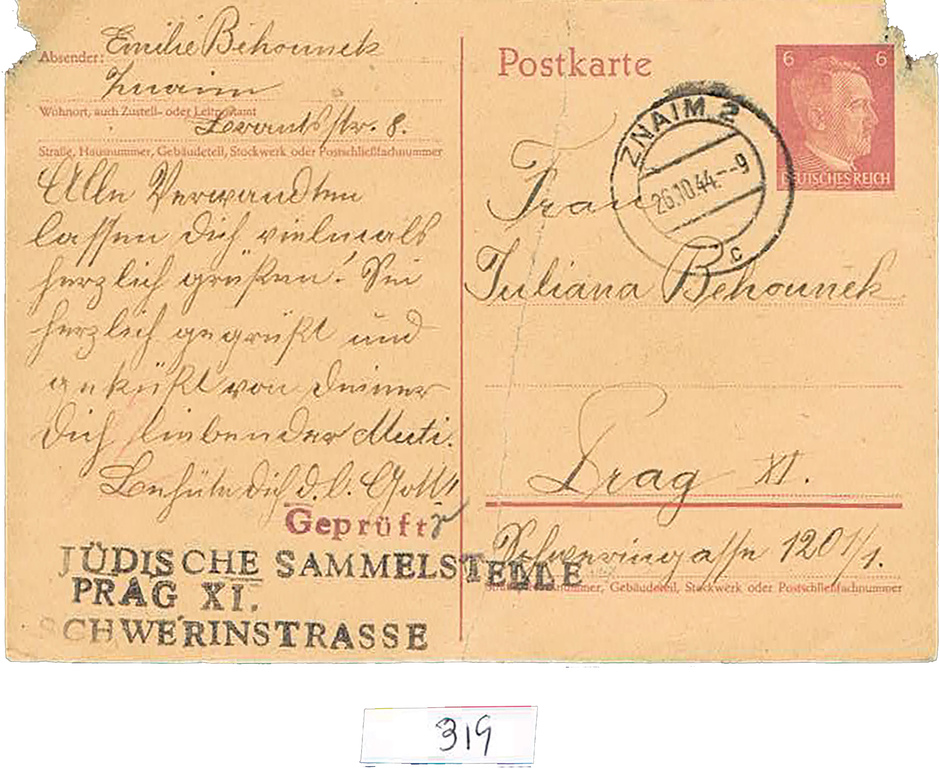 Absender: Emilie Behounek
Znaim
Wohnort, auch Zustell- oder Leitpostamt
str. 8.
Straße, Hausnummer, Gebäudeteil, Stockwerk oder Postschließfachnummer
Alle Verwandten
lassen Dich vielmals
herzlich grüßen! Sei
herzlich gegrüßt und
geküßt von Deiner
Dich liebenden Mutti.
Behüte Dich d. l. Gott!
Geprüft
JÜDISCHE SAMMELSTELLE
PRAG XI.
SCHWERINSTRASSE
Postkarte
6 6
DEUTSCHES REICH
ZNAIM 2
26.10.44.--9
c
Frau
Juliana Behounek
Prag XI.
Schweringasse 1201/1.
Straße, Hausnummer, Gebäudeteil, Stockwerk oder Postschließfachnummer
319